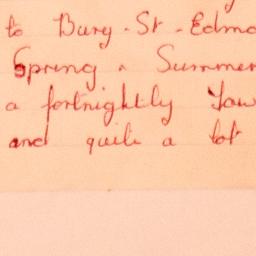 to Bury-St-Edmo
Spring & Summer
a fortnightly Jaw
and quite a lot